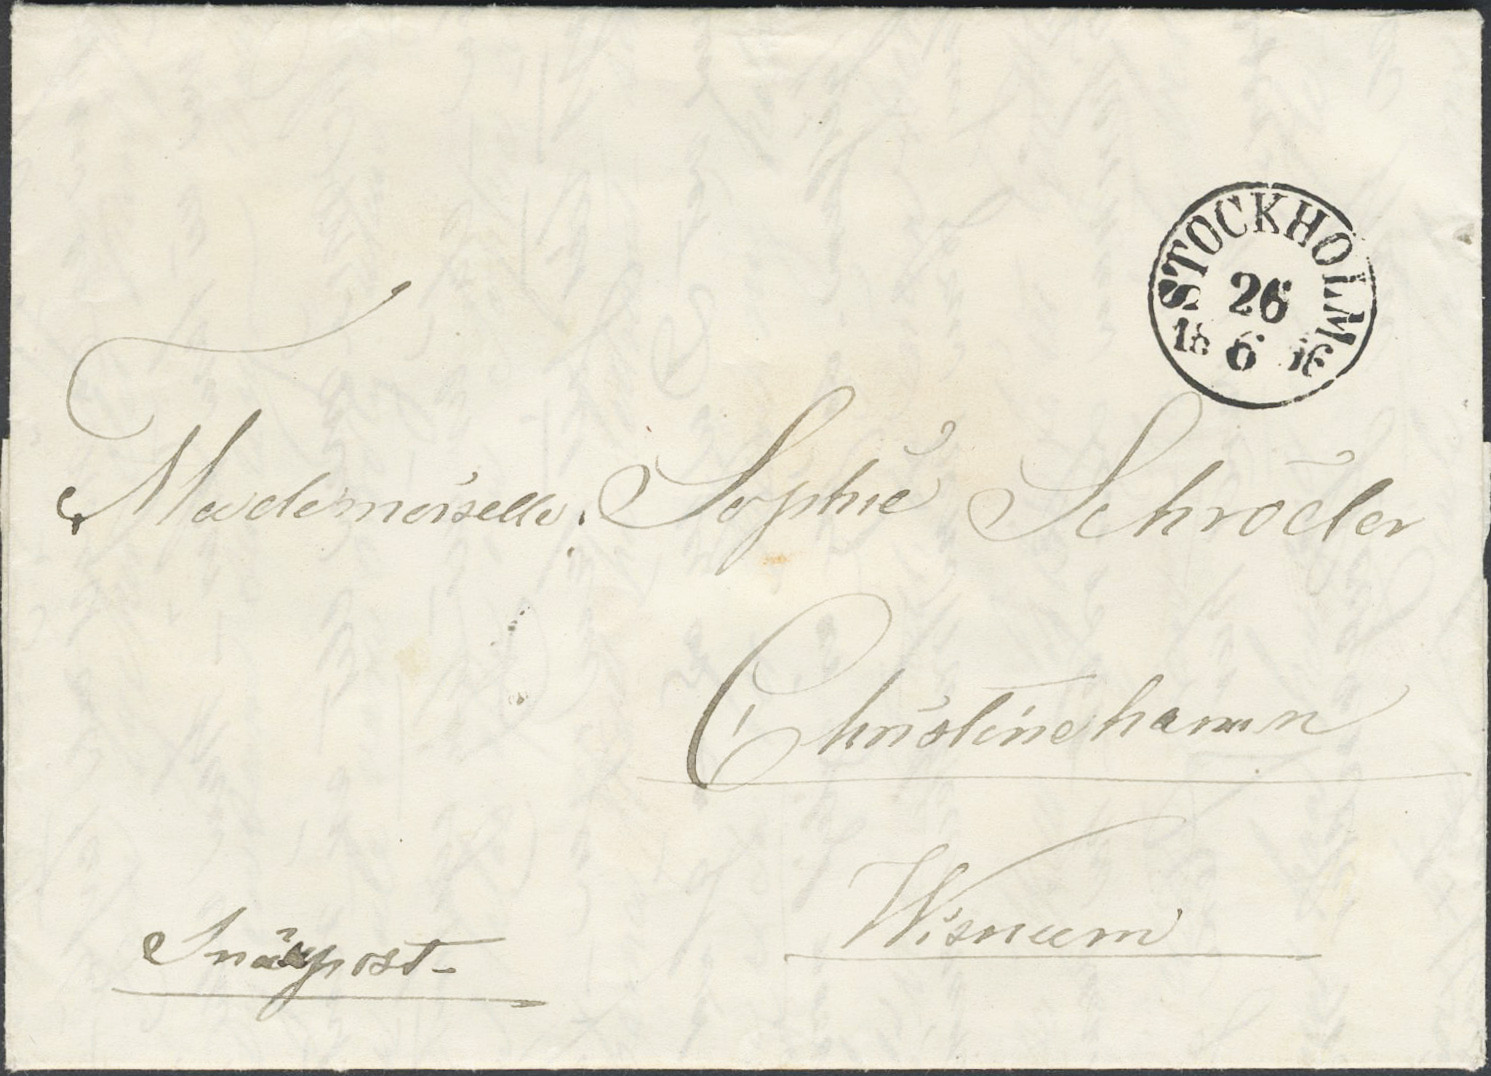 STOCKHOLM
26
18 6
Mademoiselle. Sophie Schröder
Christinehamn
Wisnum
Snällpost